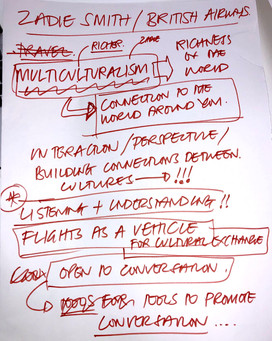 ZADIE SMITH / BRITISH AIRWAYS
TRAVEL RICHER. RICHNESS
MULTICULTURALISM OF THE
WORLD
CONNECTION TO THE
WORLD AROUND YOU.
INTERACTION / PERSPECTIVE /
BUILDING CONNECTIONS BETWEEN
CULTURES !!!
LISTENING + UNDERSTANDING !!
FLIGHTS AS A VEHICLE
FOR CULTURAL EXCHANGE
OPEN TO CONVERSATION.
TOOLS TO PROMOTE
CONVERSATION ....